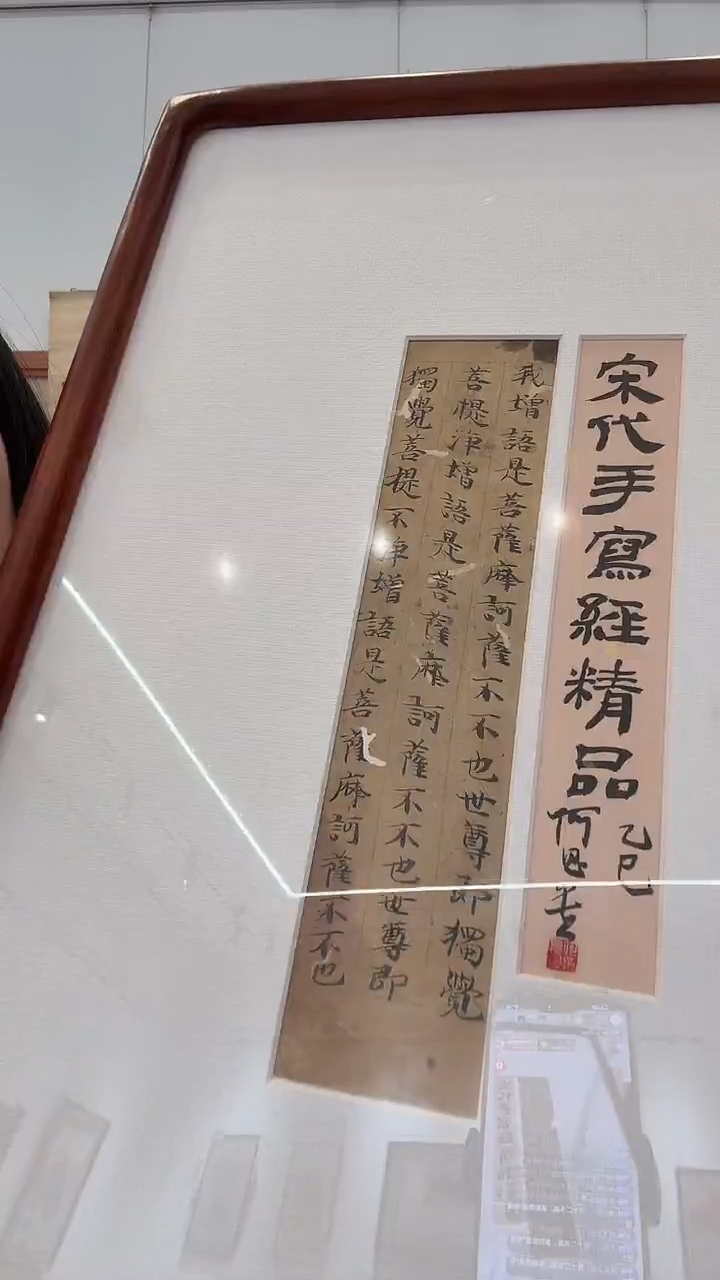 宋代手寫經精品
乙巳
何
我增語是菩薩摩訶薩不不也世尊即獨覺
菩提净增語是菩薩摩訶薩不不也世尊即
獨覺菩提不净增語是菩薩摩訶薩不不也